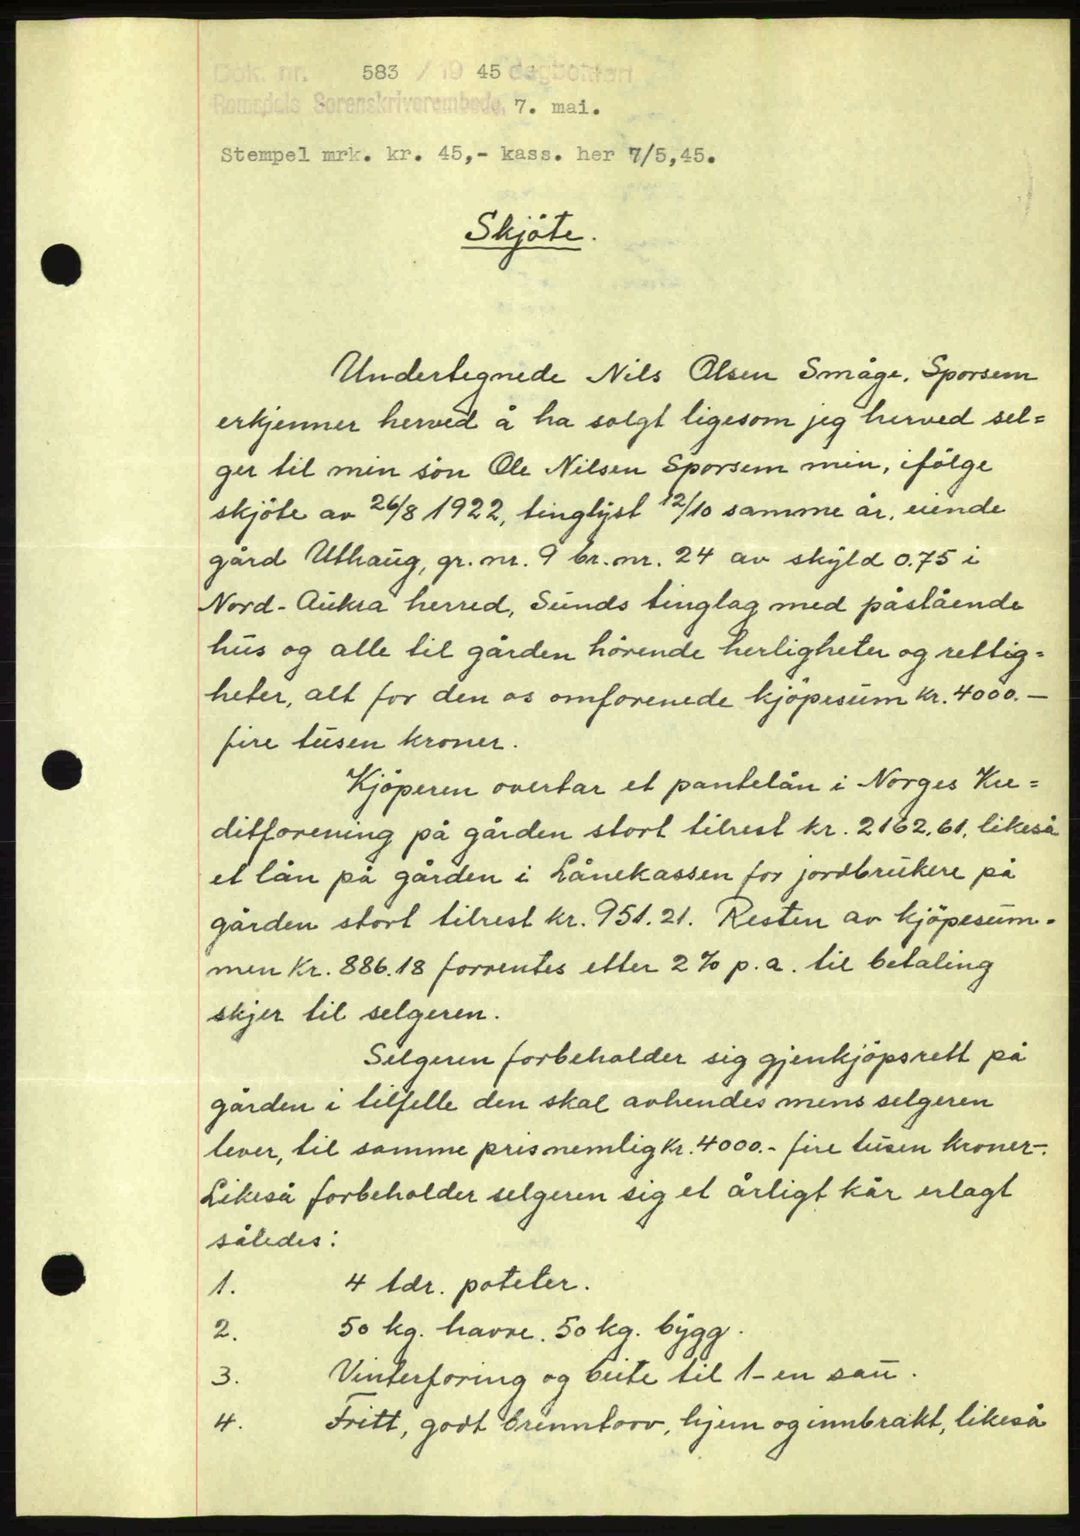 Dok. nr. 583 / 19 45 dagbokført
Romsdals Sorenskriverembede, 7. mai.
Stempel mrk. kr. 45,- kass. her 7/5,45.
Skjöte.
Undertegnede Nils Olsen Småge, Sporsem
erkjenner herved å ha solgt ligesom jeg herved sel=
ger til min sön Ole Nilsen Sporsem min, ifölge
skjöte av 26/8 1922, tinglyst 12/10 samme år, eiende
gård Uthaug, gr. nr. 9 br. nr. 24 av skyld 0.75 i
Nord-Aukra herred, Sunds tinglag med påstående
hus og alle til gården hörende herligheter og rettig=
heter, alt for den os omforenede kjöpesum kr. 4000.—
fire tusen kroner.
Kjöperen overtar et pantelån i Norges Kre=
ditforening på gården stort tilrest kr. 2162,61, likeså
et lån på gården i Lånekassen for jordbrukere på
gården stort tilrest kr. 951.21. Resten av kjöpesum=
men Kr. 886.18 forrentes etter 2% p.a. til betaling
skjer til selgeren.
Selgeren forbeholder sig gjenkjöpsrett på
gården i tilfelle den skal avhendes mens selgeren
lever, til samme pris nemlig Kr. 4000.- fire tusen kroner-.
Likeså forbeholder selgeren sig et årligt kår erlagt
således:
1. 4 tdr. poteter.
2. 50 kg. havre. 50 kg. bygg.
3. Vinterforing og beite til 1-en sau.
4. Fritt, godt brenntorv, hjem og innbrakt, likeså